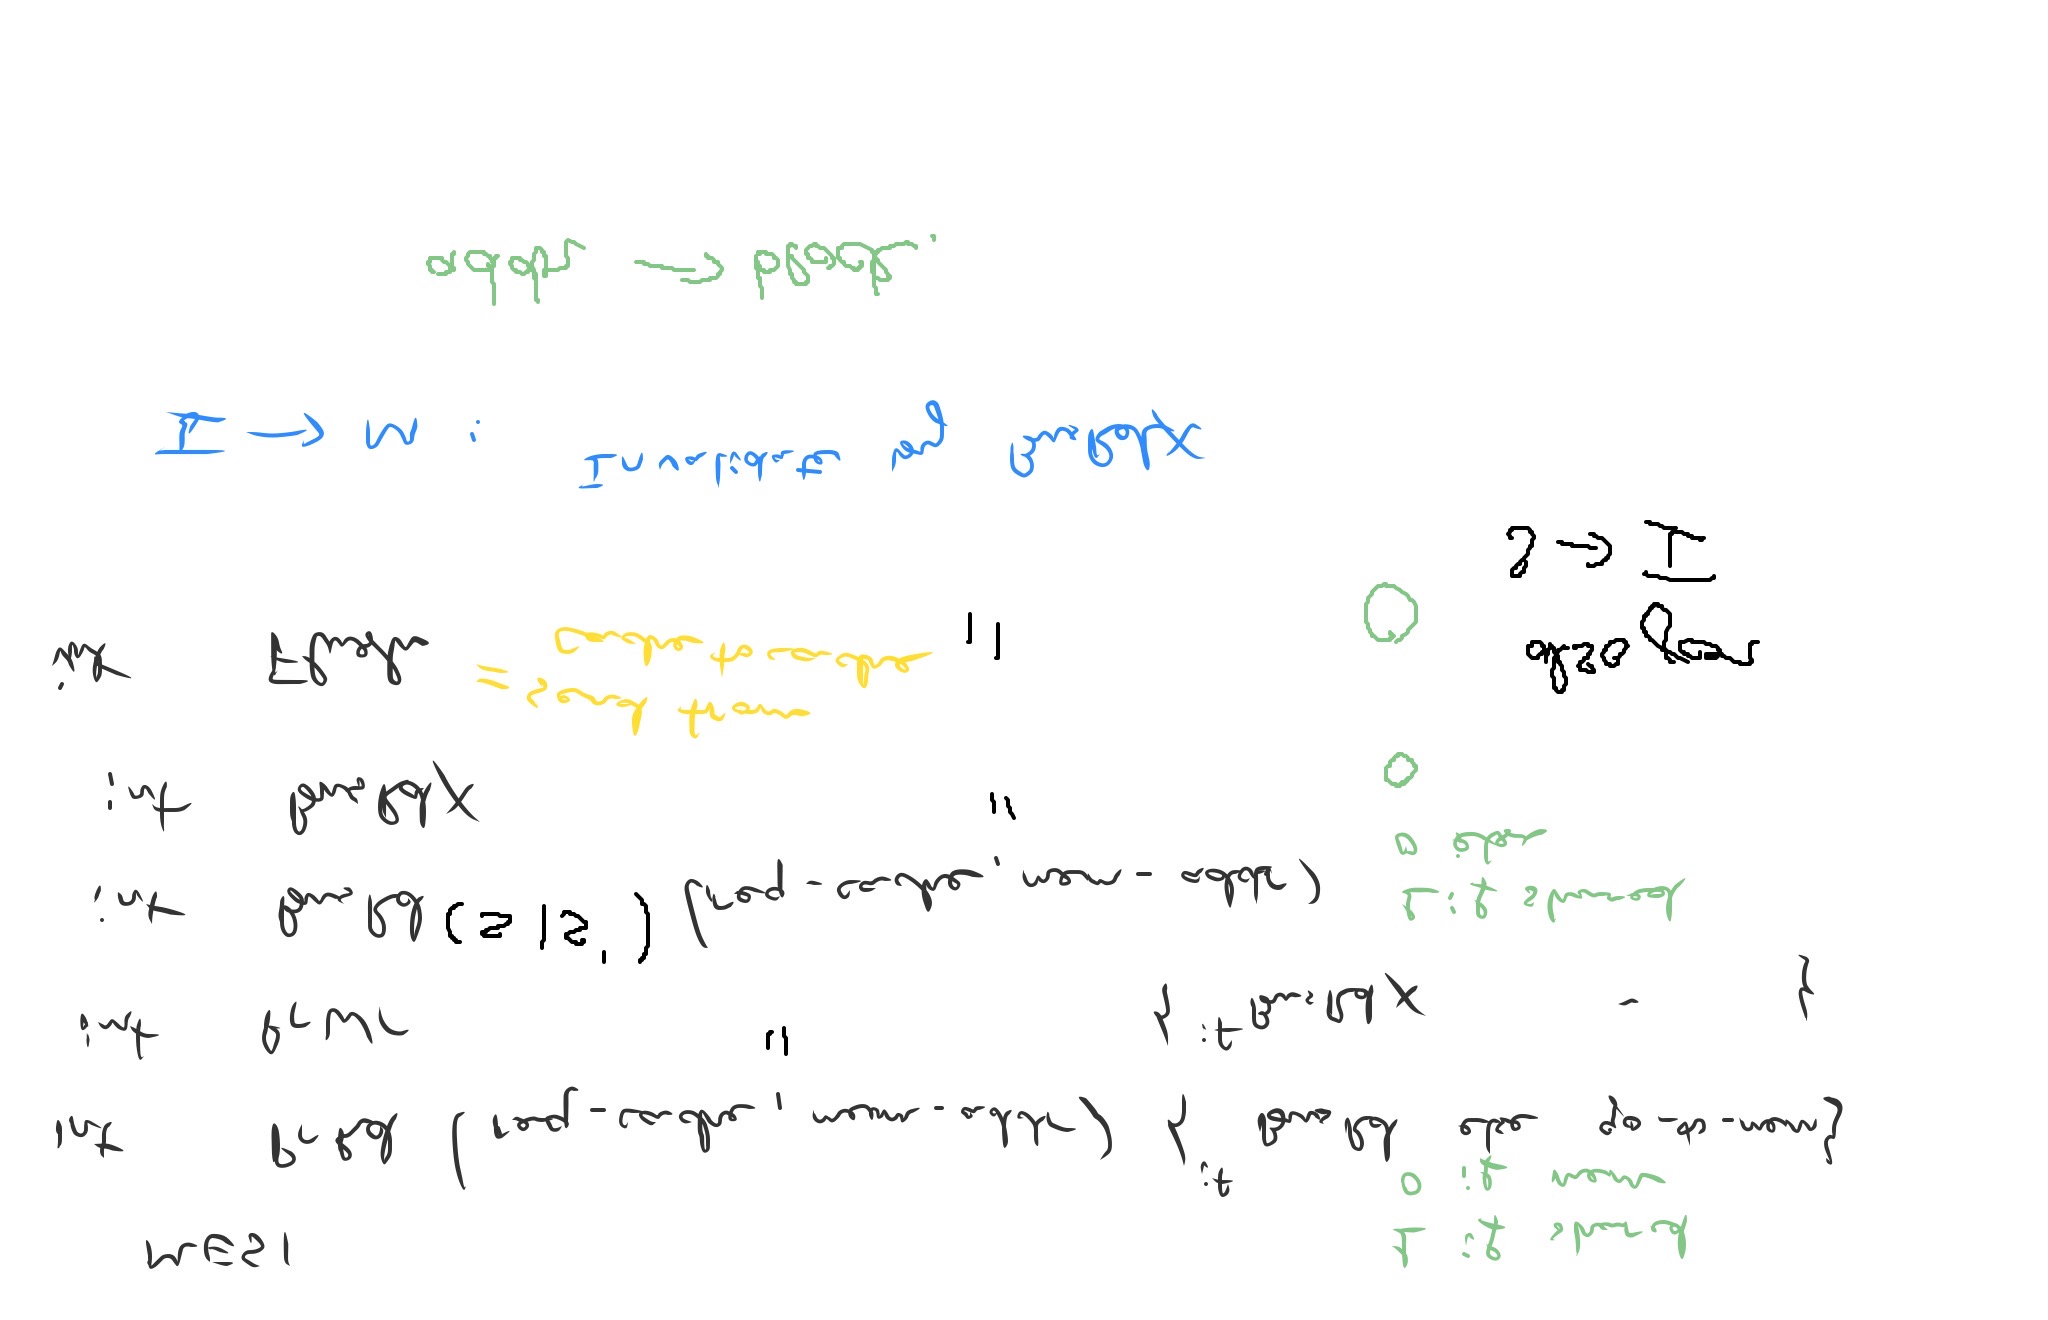 MESI
1 if shared
0 if mem
int PrRd (req_cache, mem_addr) { if BusRd else go_to_mem}
int PrWr " { if BusRdX - }
int BusRd (S|S') (req_cache, mem_addr) 1 if shared
0 else
int BusRdX " 0
int Flush = send from
cache to cache " 0
also
S → I
I → M : Invalidate by BusRdX
addr → block.